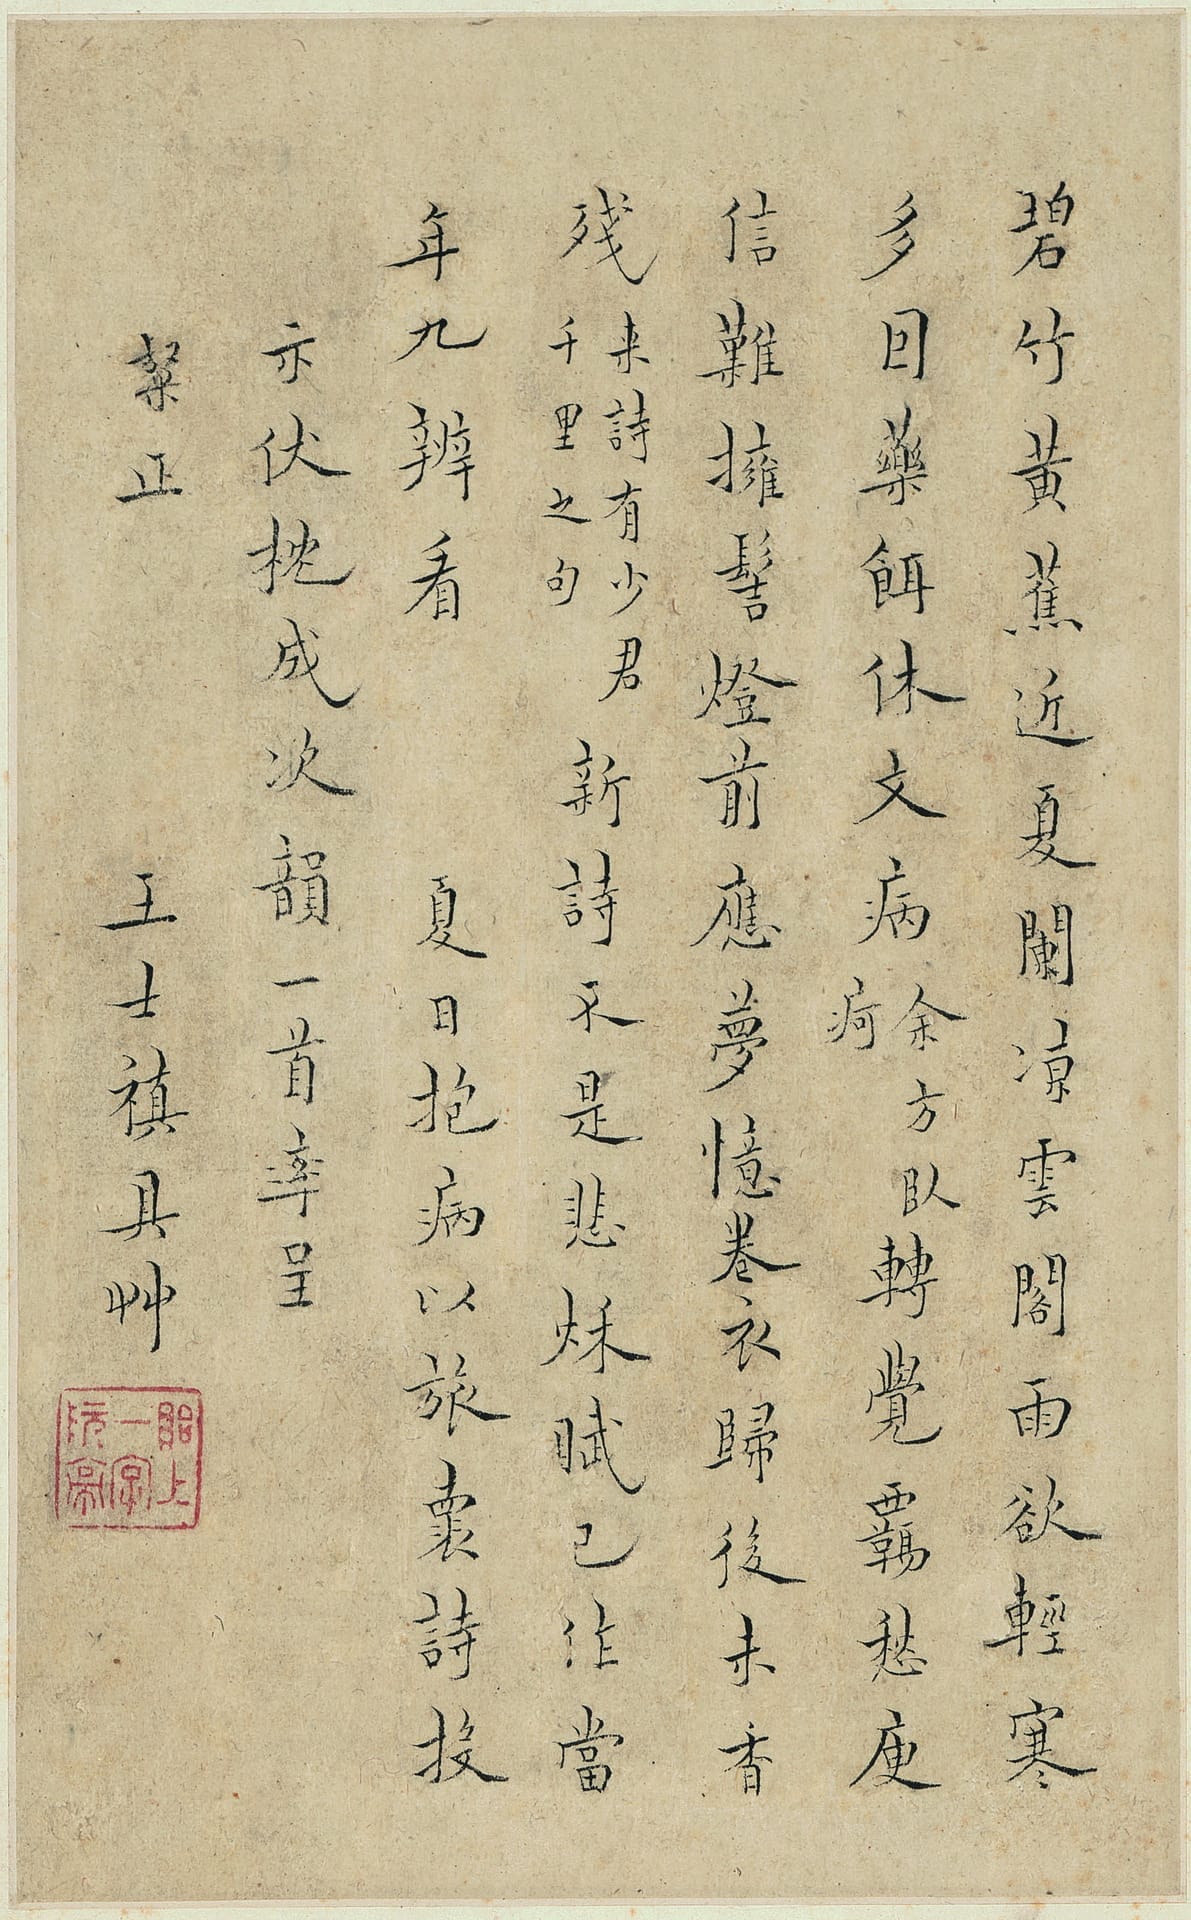 碧竹黃蕉近夏闌凉雲閣雨欲輕寒
多囙藥餌休文病余方臥痾轉覺羈愁庾
信難擁髻燈前應夢憶卷衣歸後未香
殘来詩有少君千里之句新詩不是悲秌賦已作當
年九辨看 夏日抱病以旅囊詩投
示伏枕成次韻一首率呈
粲正 王士禛具艸
貽上一字阮亭